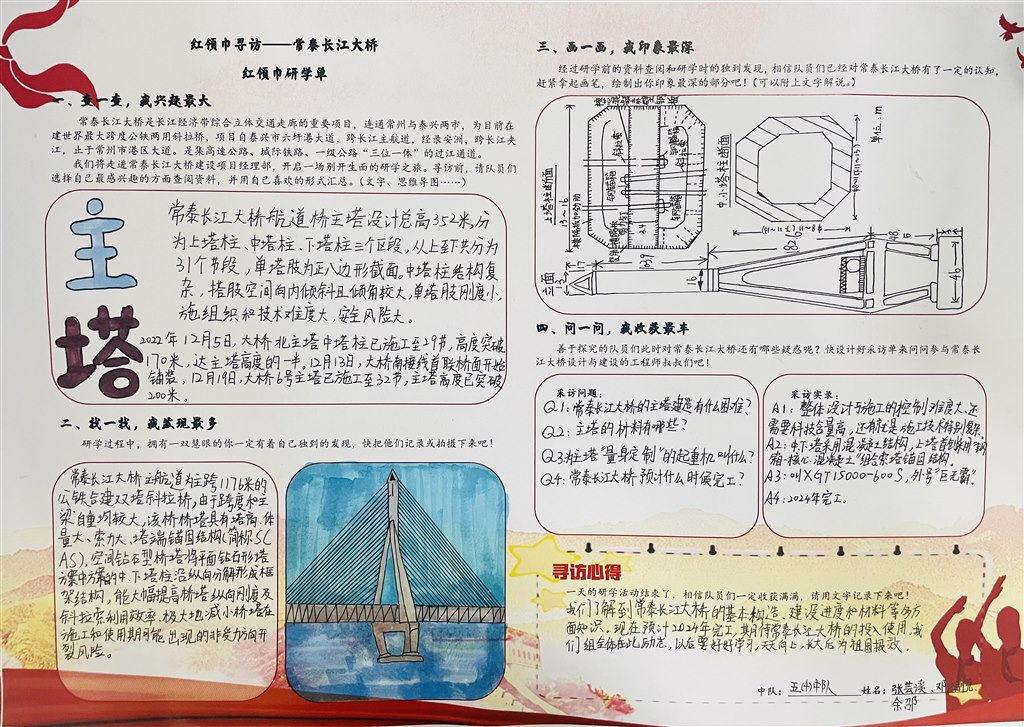 红领巾寻访——常泰长江大桥
红领巾研学单
一、查一查，我兴趣最大
常泰长江大桥是长江经济带综合立体交通走廊的重要项目，连通常州与泰兴两市，为目前在
建世界最大跨度公铁两用斜拉桥，项目自泰兴市六圩港大道，跨长江主航道，经录安洲，跨长江夹
江，止于常州市港区大道。是集高速公路、城际铁路、一级公路“三位一体”的过江通道。
我们将走进常泰长江大桥建设项目经理部，开启一场别开生面的研学之旅。寻访前，请队员们
选择自己最感兴趣的方面查阅资料，并用自己喜欢的形式汇总。（文字、思维导图……）
主塔
常泰长江大桥航道桥主塔设计总高352米，分
为上塔柱、中塔柱、下塔柱三个区段，从上至下共分为
31个节段，单塔肢为正八边形截面。中塔柱结构复
杂，塔肢空间向内倾斜且倾角较大，单塔肢刚度小，
施组织和技术难度大，安全风险大。
2022年12月5日，大桥北主塔中塔柱已施工至29节，高度突破
170米，达主塔高度的一半。12月13日，大桥南接线首联桥面开始
铺装。12月19日，大桥6号主塔已施工至32节，主塔高度已突破
200米。
二、找一找，我发现最多
研学过程中，拥有一双慧眼的你一定有着自己独到的发现，快把他们记录或拍摄下来吧！
常泰长江大桥主航道为主跨1176米的
公铁合建双塔斜拉桥，由于跨度和主
梁自重均较大，该桥桥塔具有塔高、体
量大、索力大、塔端锚固结构（简称SC
AS）。空间钻石型桥塔将平面钻石形塔
方案中方案的中、下塔柱沿纵向分解形成框
架结构，能大幅提高桥塔纵向刚度及
斜拉索利用效率，极大地减小桥塔在
施工和使用期间可能出现的非受力向开
裂风险。
三、画一画，我印象最深
经过研学前的资料查阅和研学时的独到发现，相信队员们已经对常泰长江大桥有了一定的认知，
赶紧拿起画笔，绘制出你印象最深的部分吧！（可以附上文字解说。）
上塔柱断面
13～16
中.下塔柱断面
单位：m
立面
17
103.9
16
82.6
46
四、问一问，我收获最丰
善于探究的队员们此时对常泰长江大桥还有哪些疑惑呢？快设计好采访单来问问参与常泰长
江大桥设计与建设的工程师叔叔们吧！
采访问题：
Q1：常泰长江大桥的主塔建造有什么困难？
Q2：主塔的材料有哪些？
Q3：为主塔“量身定制”的起重机叫什么？
Q4：常泰长江大桥预计什么时候完工？
采访实录：
A1：整体设计与施工的控制难度大、还
需要科技含量高，还有就是施工技术特别复杂。
A2：中.下塔采用混凝土结构，上塔首创采用“钢
箱-核心混凝土”组合索塔锚固结构。
A3：叫XGT15000-600S，外号“巨无霸”。
A4：2024年完工。
寻访心得
一天的研学活动结束了，相信队员们一定收获满满，请用文字记录下来吧！
我们了解到常泰长江大桥的基本构造、建设进度和材料等多方
面知识。现在预计2024年完工，期待常泰长江大桥的投入使用。我
们组全体在此励志，以后要好好学习，天天向上，长大后为祖国报效。
中队：五(4)中队 姓名：张芸溪、邓
余邵